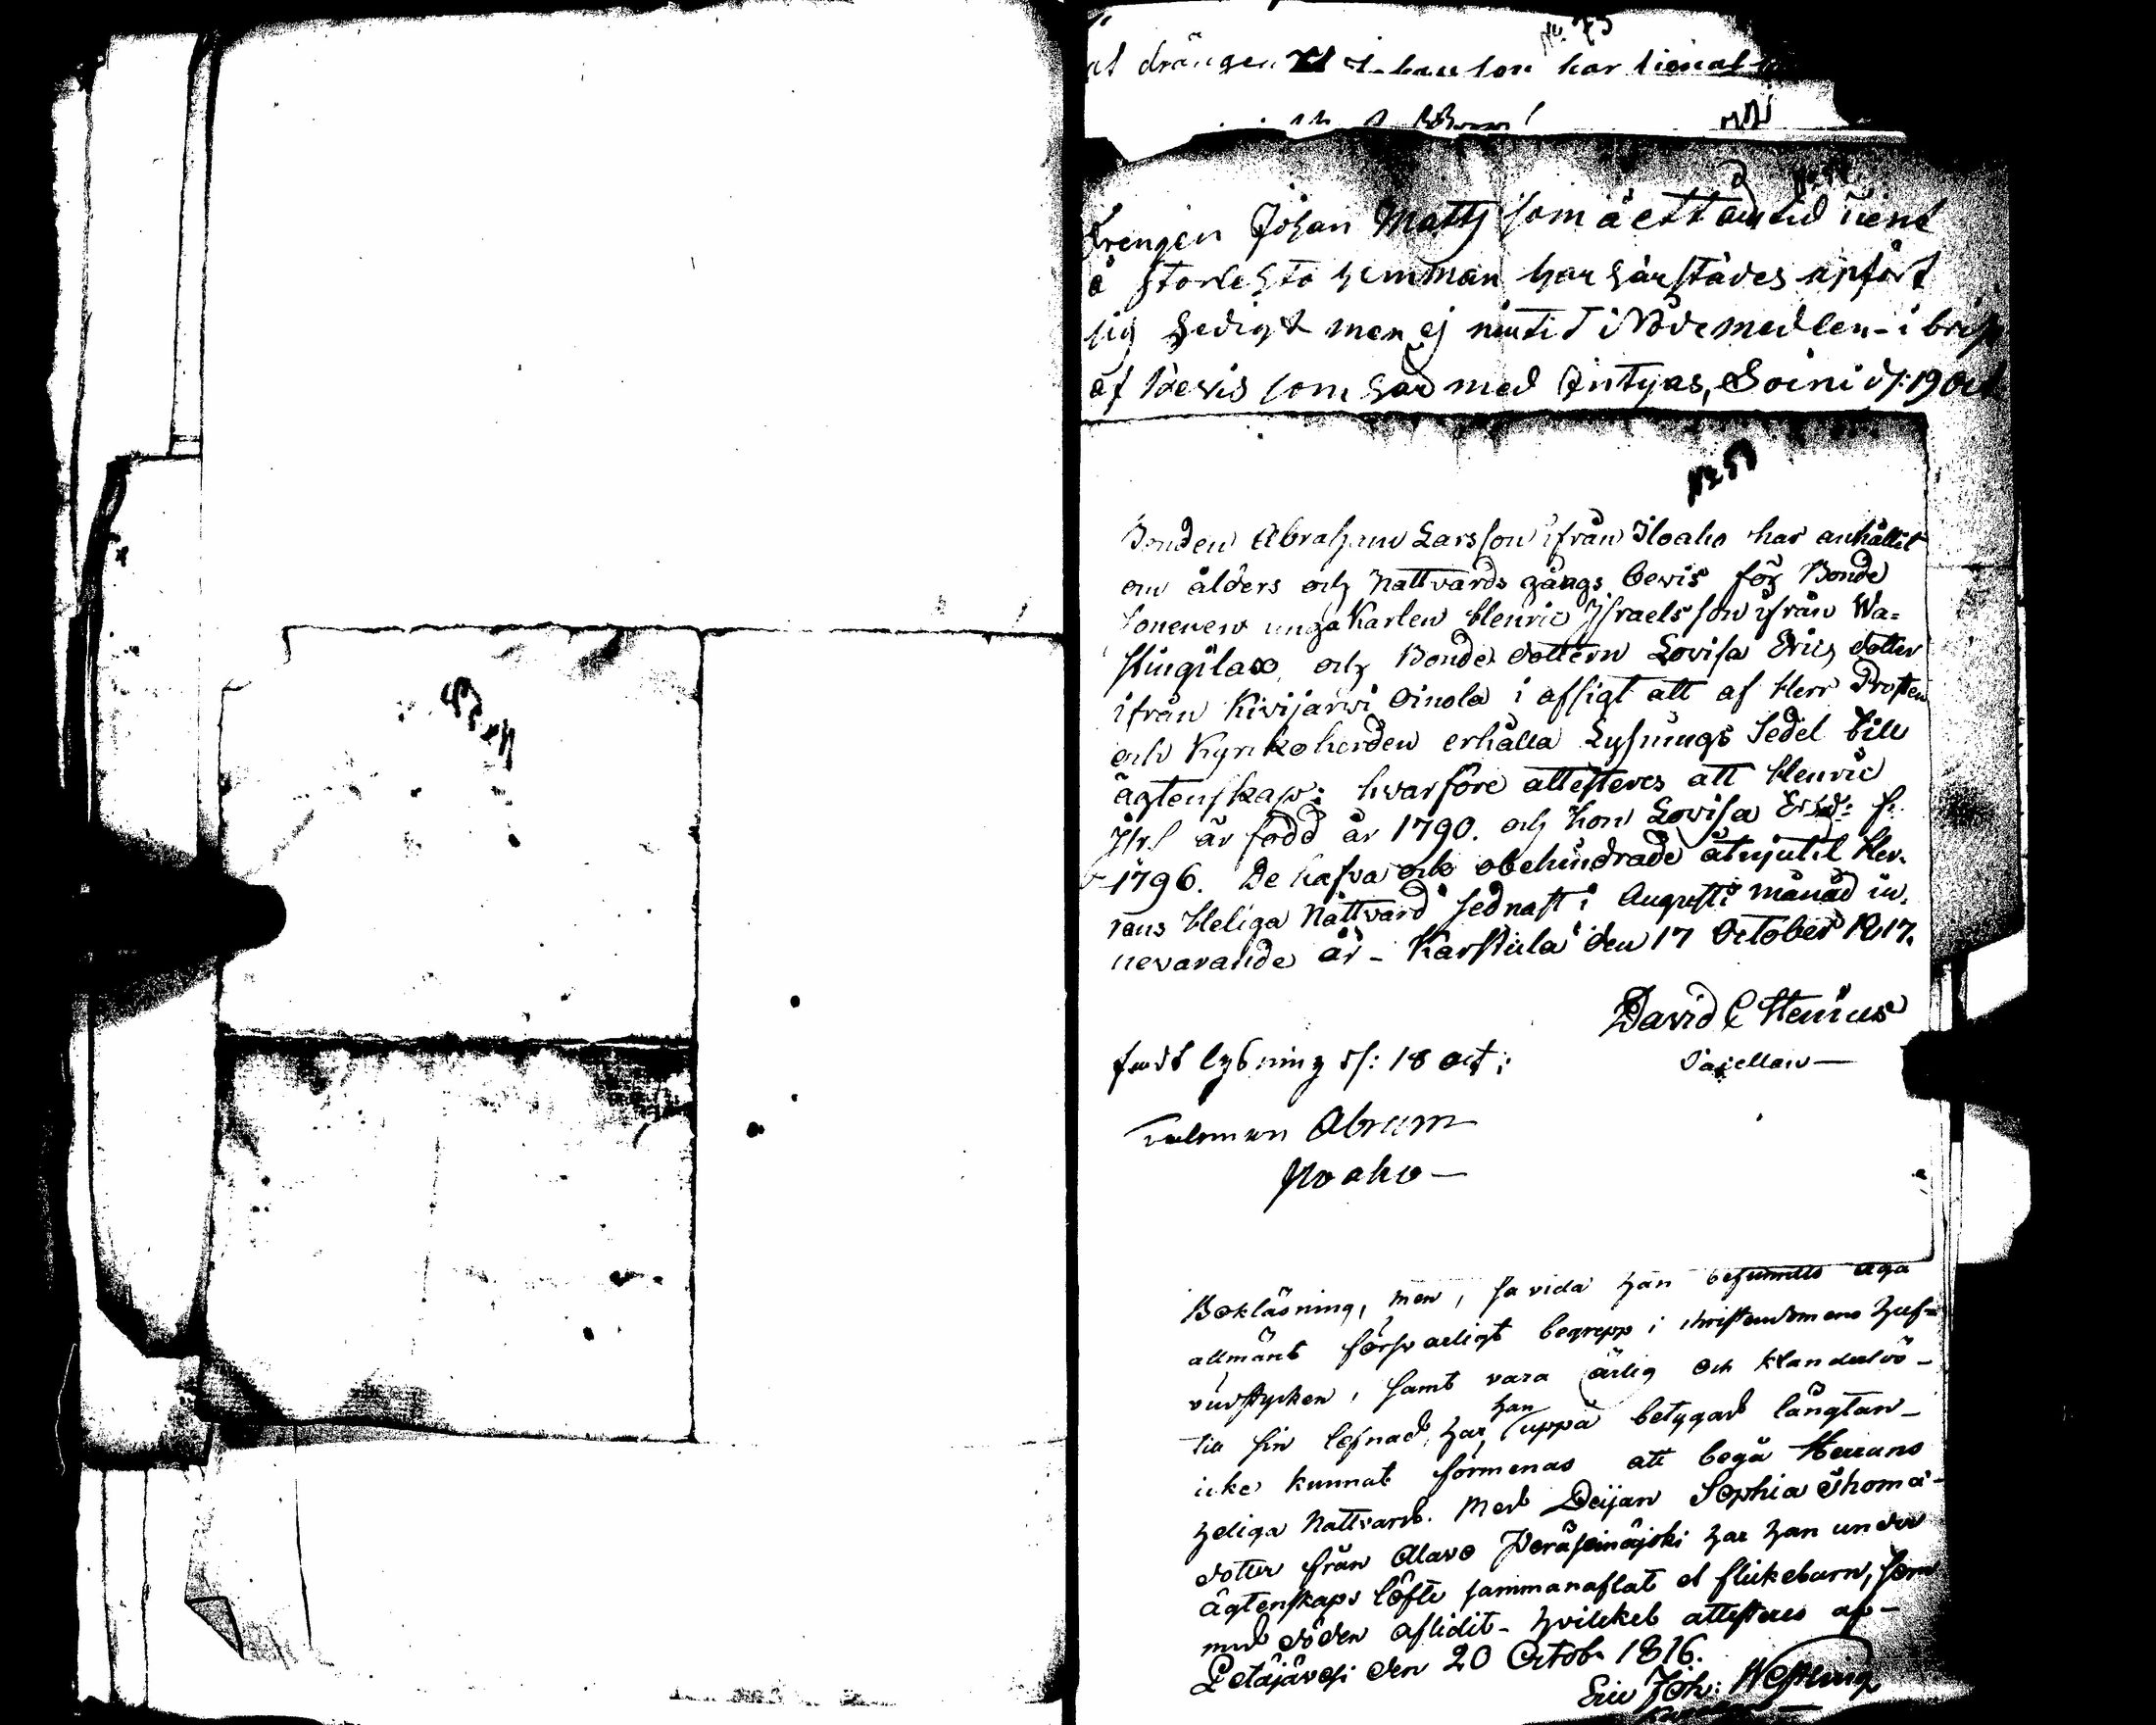 No. 73
at drängen Johansson har tienat
Drengen Johan Matts som å ett
å Storlehto hemman har härstädes upfört
sig hedigt men ej niutit i Nådemedlen i brist
af bevis som här med Intygas, Soini d: 19 Oct
Bonden Abraham Larsson ifrån Iloaho har anhållit
om ålders och Nattvards gångs bevis för Bonde
Sonenen unga Karlen Henric Israelsson ifrån Wa-
stingilax och Bonde dottern Lovisa Erics dotter
ifrån Kivijärwi Oinola i afsigt att af Herr Prosten
och Kyrckoherden erhålla Lysnings Sedel till
ägtenskap: hvarföre attesteres att Henric
Isr.S är född år 1790. och hon Lovisa Ersd: f.
1796. De hafva och obehindrade åtnjutit Her-
rans Heliga Nattvard sednast i Augusti månad in-
nevarande år - Karstula den 17 October 1817.
David C Stenius
Capellan
första lysning d: 18 oct:
Taleman Abram
Iloaho
Bokläsning, men, så vida han befunnits äga
allmänt försvarligt begrepp i christendomens huf-
vudstycken, samt vara ärlig och klanderlös
till sin lefnad, har han uppå betygad längtan
icke kunnat förmenas att begå Herrans
heliga Nattvard. Med Deijan Sophia Thomæ-
dotter från Alavo Peräseinäjoki har han under
ägtenskaps löfte sammanaflat et flickebarn, som
med döden aflidit - hvilcket attesteres af
Petäjävesi den 20 Octob. 1816.
Eric Joh: Westling